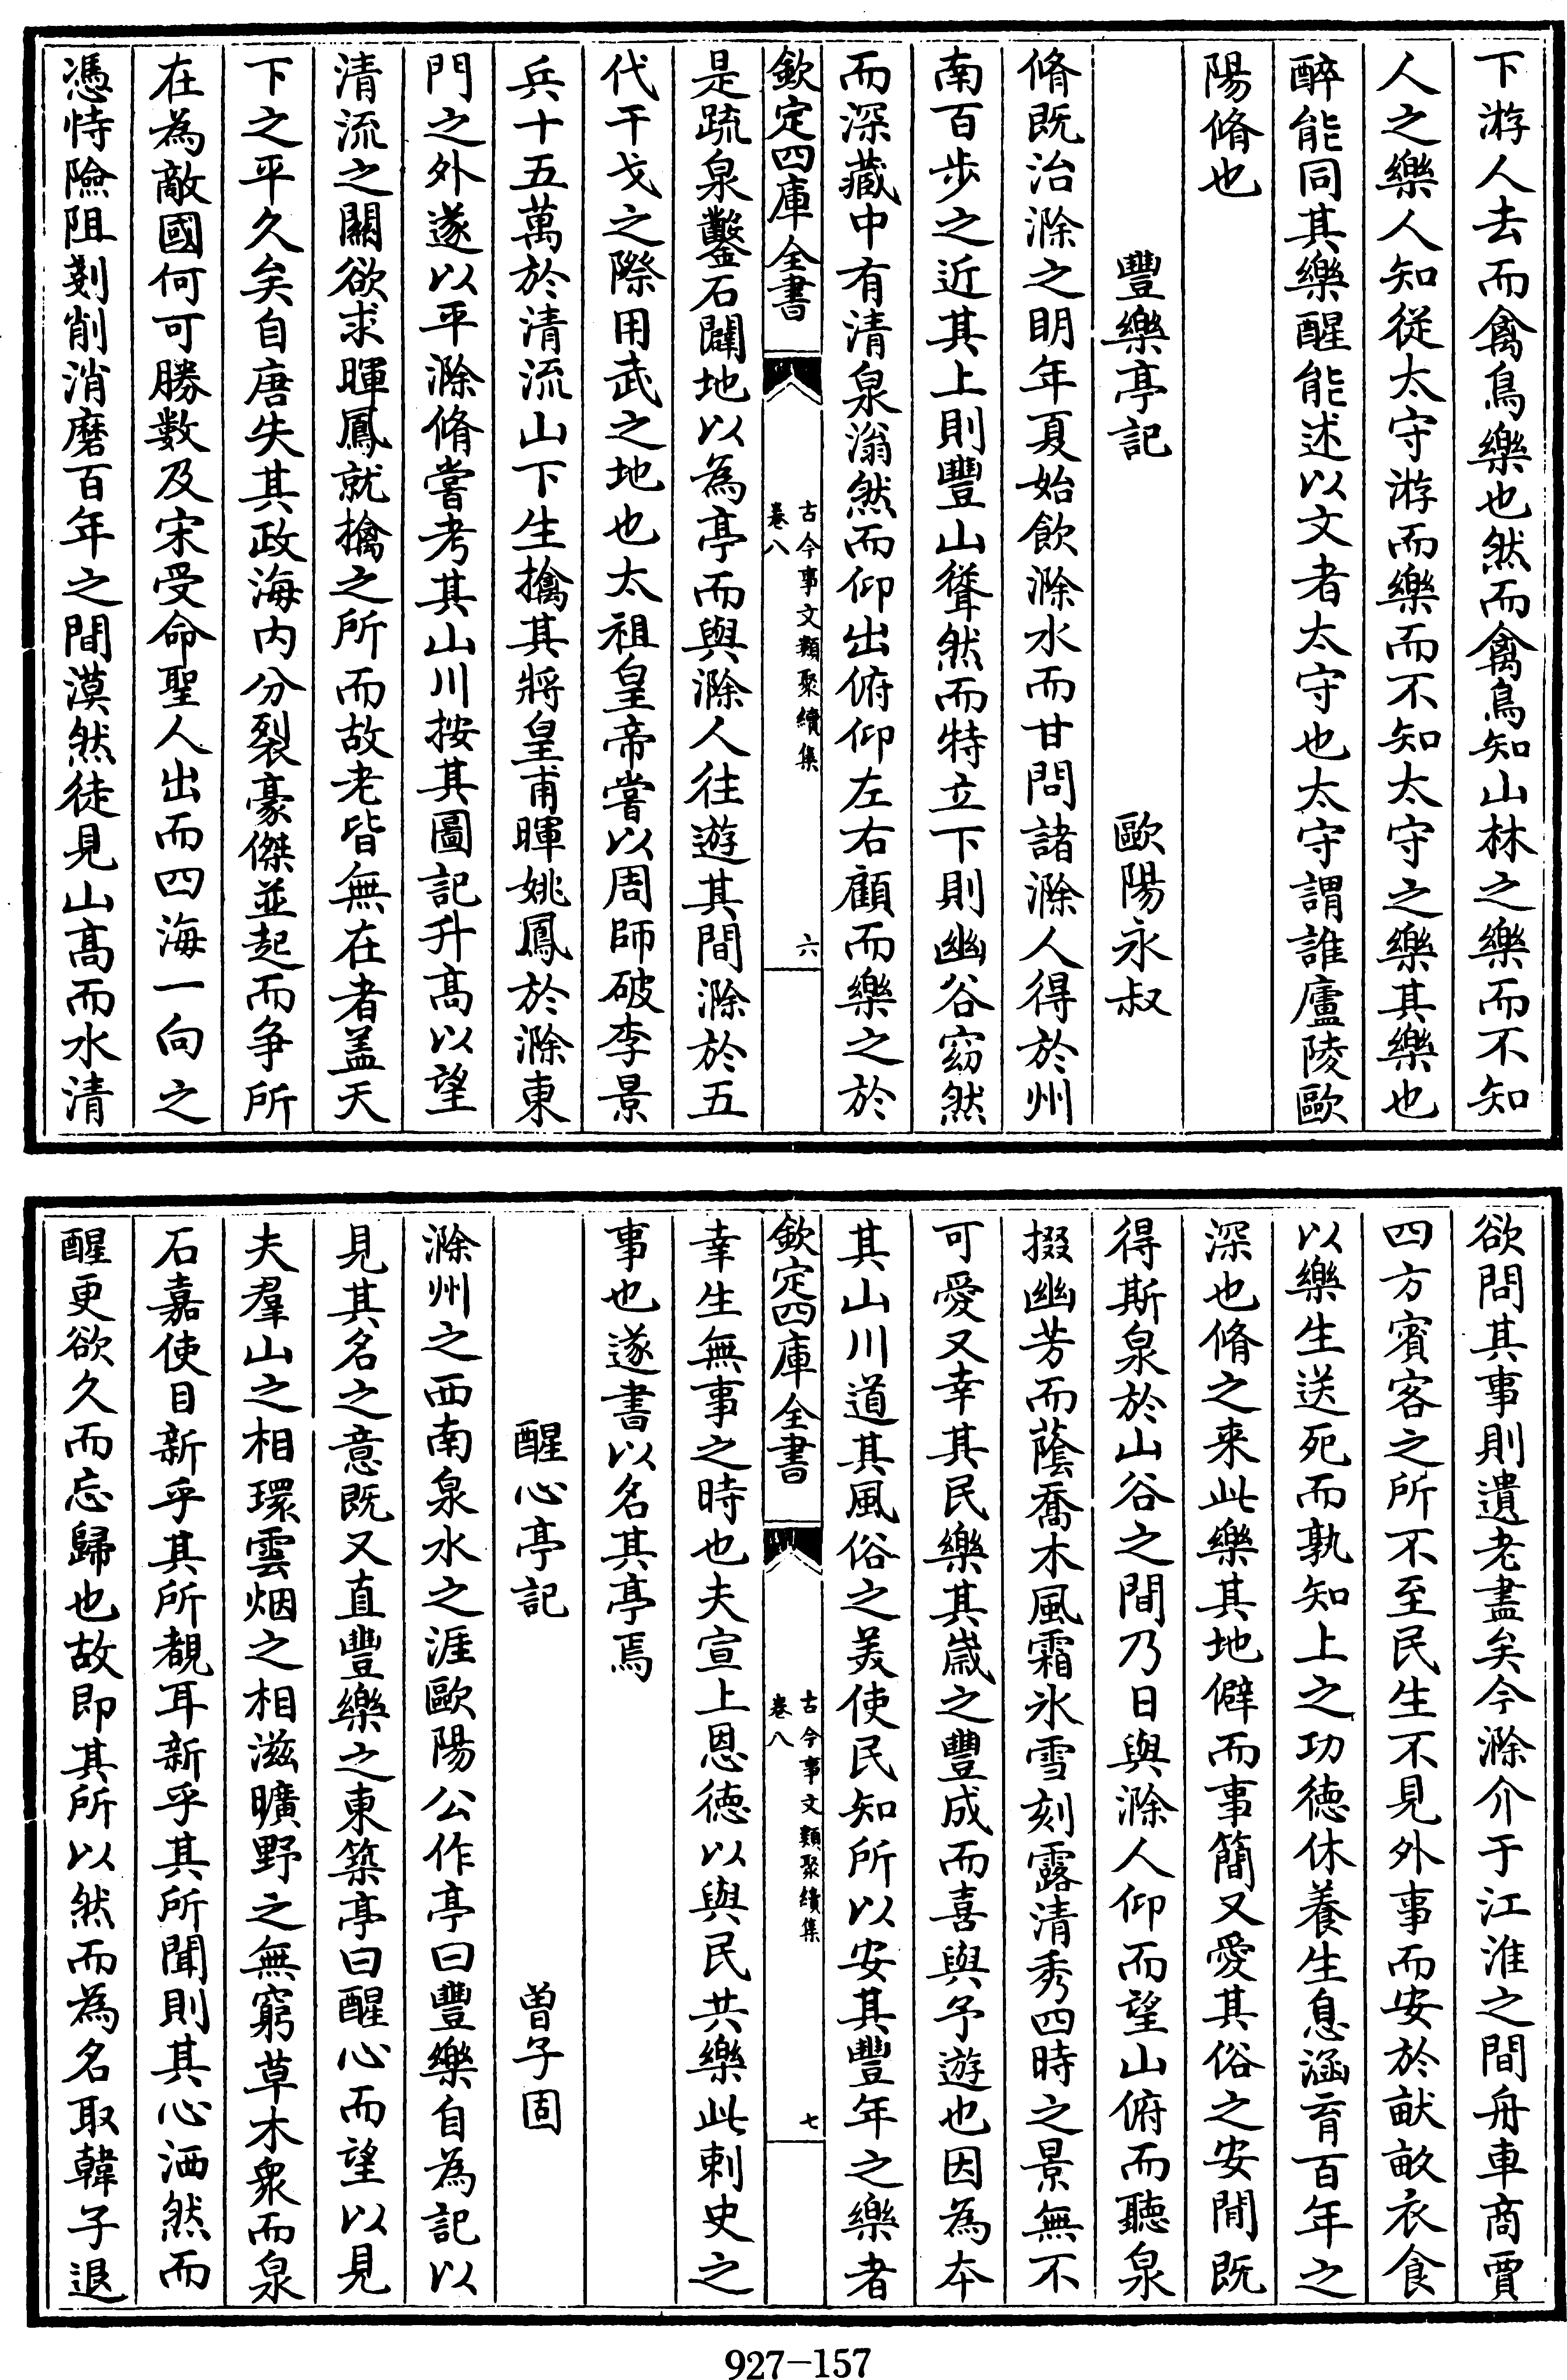 下游人去而禽鳥樂也然而禽鳥知山林之樂而不知
人之樂人知從太守游而樂而不知太守之樂其樂也
醉能同其樂醒能述以文者太守也太守謂誰廬陵歐
陽脩也
豐樂亭記　歐陽永叔
脩既治滁之明年夏始飲滁水而甘問諸滁人得於州
南百步之近其上則豐山聳然而特立下則幽谷窈然
而深藏中有清泉滃然而仰出俯仰左右顧而樂之於
欽定四庫全書　古今事文類聚續集　卷八　六
是疏泉鑿石闢地以為亭而與滁人往遊其間滁於五
代干戈之際用武之地也太祖皇帝嘗以周師破李景
兵十五萬於清流山下生擒其將皇甫暉姚鳳於滁東
門之外遂以平滁脩嘗考其山川按其圖記升髙以望
清流之關欲求暉鳳就擒之所而故老皆無在者盖天
下之平久矣自唐失其政海内分裂豪傑並起而争所
在為敵國何可勝數及宋受命聖人出而四海一向之
憑恃險阻剗削消磨百年之間漠然徒見山髙而水清
欲問其事則遺老盡矣今滁介于江淮之間舟車商賈
四方賓客之所不至民生不見外事而安於畎畝衣食
以樂生送死而孰知上之功德休養生息涵育百年之
深也脩之来此樂其地僻而事簡又愛其俗之安閒既
得斯泉於山谷之間乃日與滁人仰而望山俯而聽泉
掇幽芳而蔭喬木風霜氷雪刻露清秀四時之景無不
可愛又幸其民樂其嵗之豐成而喜與予遊也因為本
其山川道其風俗之美使民知所以安其豐年之樂者
欽定四庫全書　古今事文類聚續集　卷八　七
幸生無事之時也夫宣上恩德以與民共樂此刺史之
事也遂書以名其亭焉
醒心亭記　曾子固
滁州之西南泉水之涯歐陽公作亭曰豐樂自為記以
見其名之意既又直豐樂之東築亭曰醒心而望以見
夫羣山之相環雲烟之相滋曠野之無窮草木衆而泉
石嘉使目新乎其所覩耳新乎其所聞則其心洒然而
醒更欲久而忘歸也故即其所以然而為名取韓子退
927－157